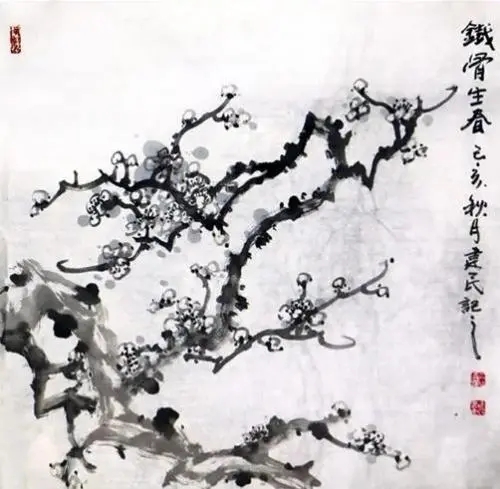 鐵骨生春己亥秋月建民記之